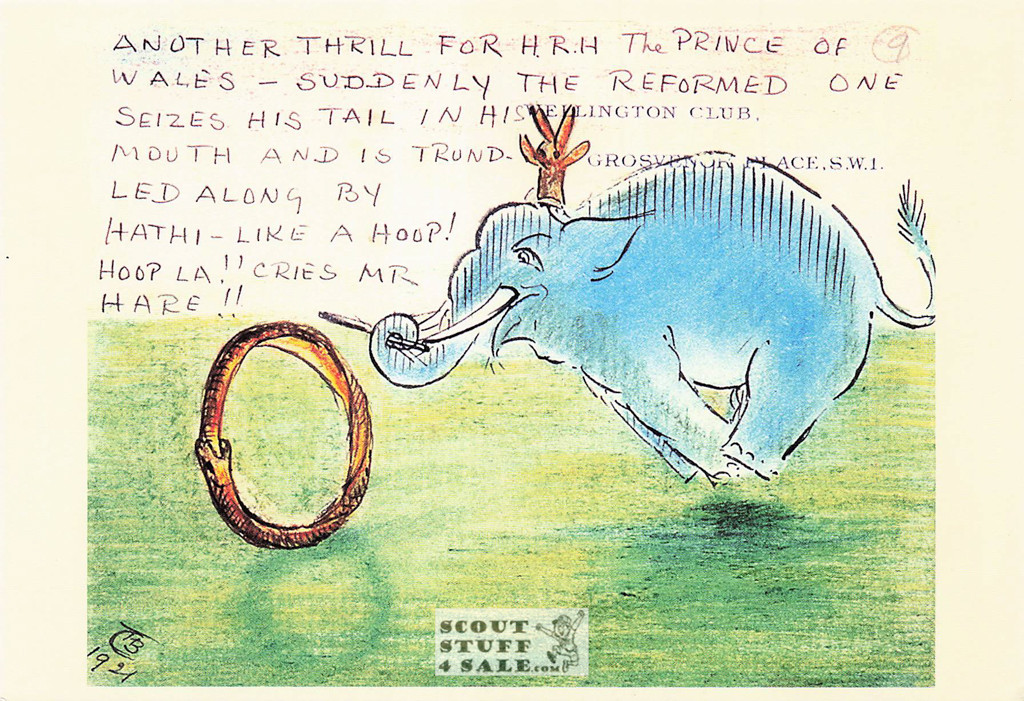 ANOTHER THRILL FOR H.R.H The PRINCE OF 9
WALES – SUDDENLY THE REFORMED ONE
SEIZES HIS TAIL IN HIS
WELLINGTON CLUB,
MOUTH AND IS TRUND-
GROSVENOR PLACE, S.W.1.
LED ALONG BY
HATHI – LIKE A HOOP!
HOOP LA!! CRIES MR
HARE!!
1921
SCOUT
STUFF
4 SALE.com